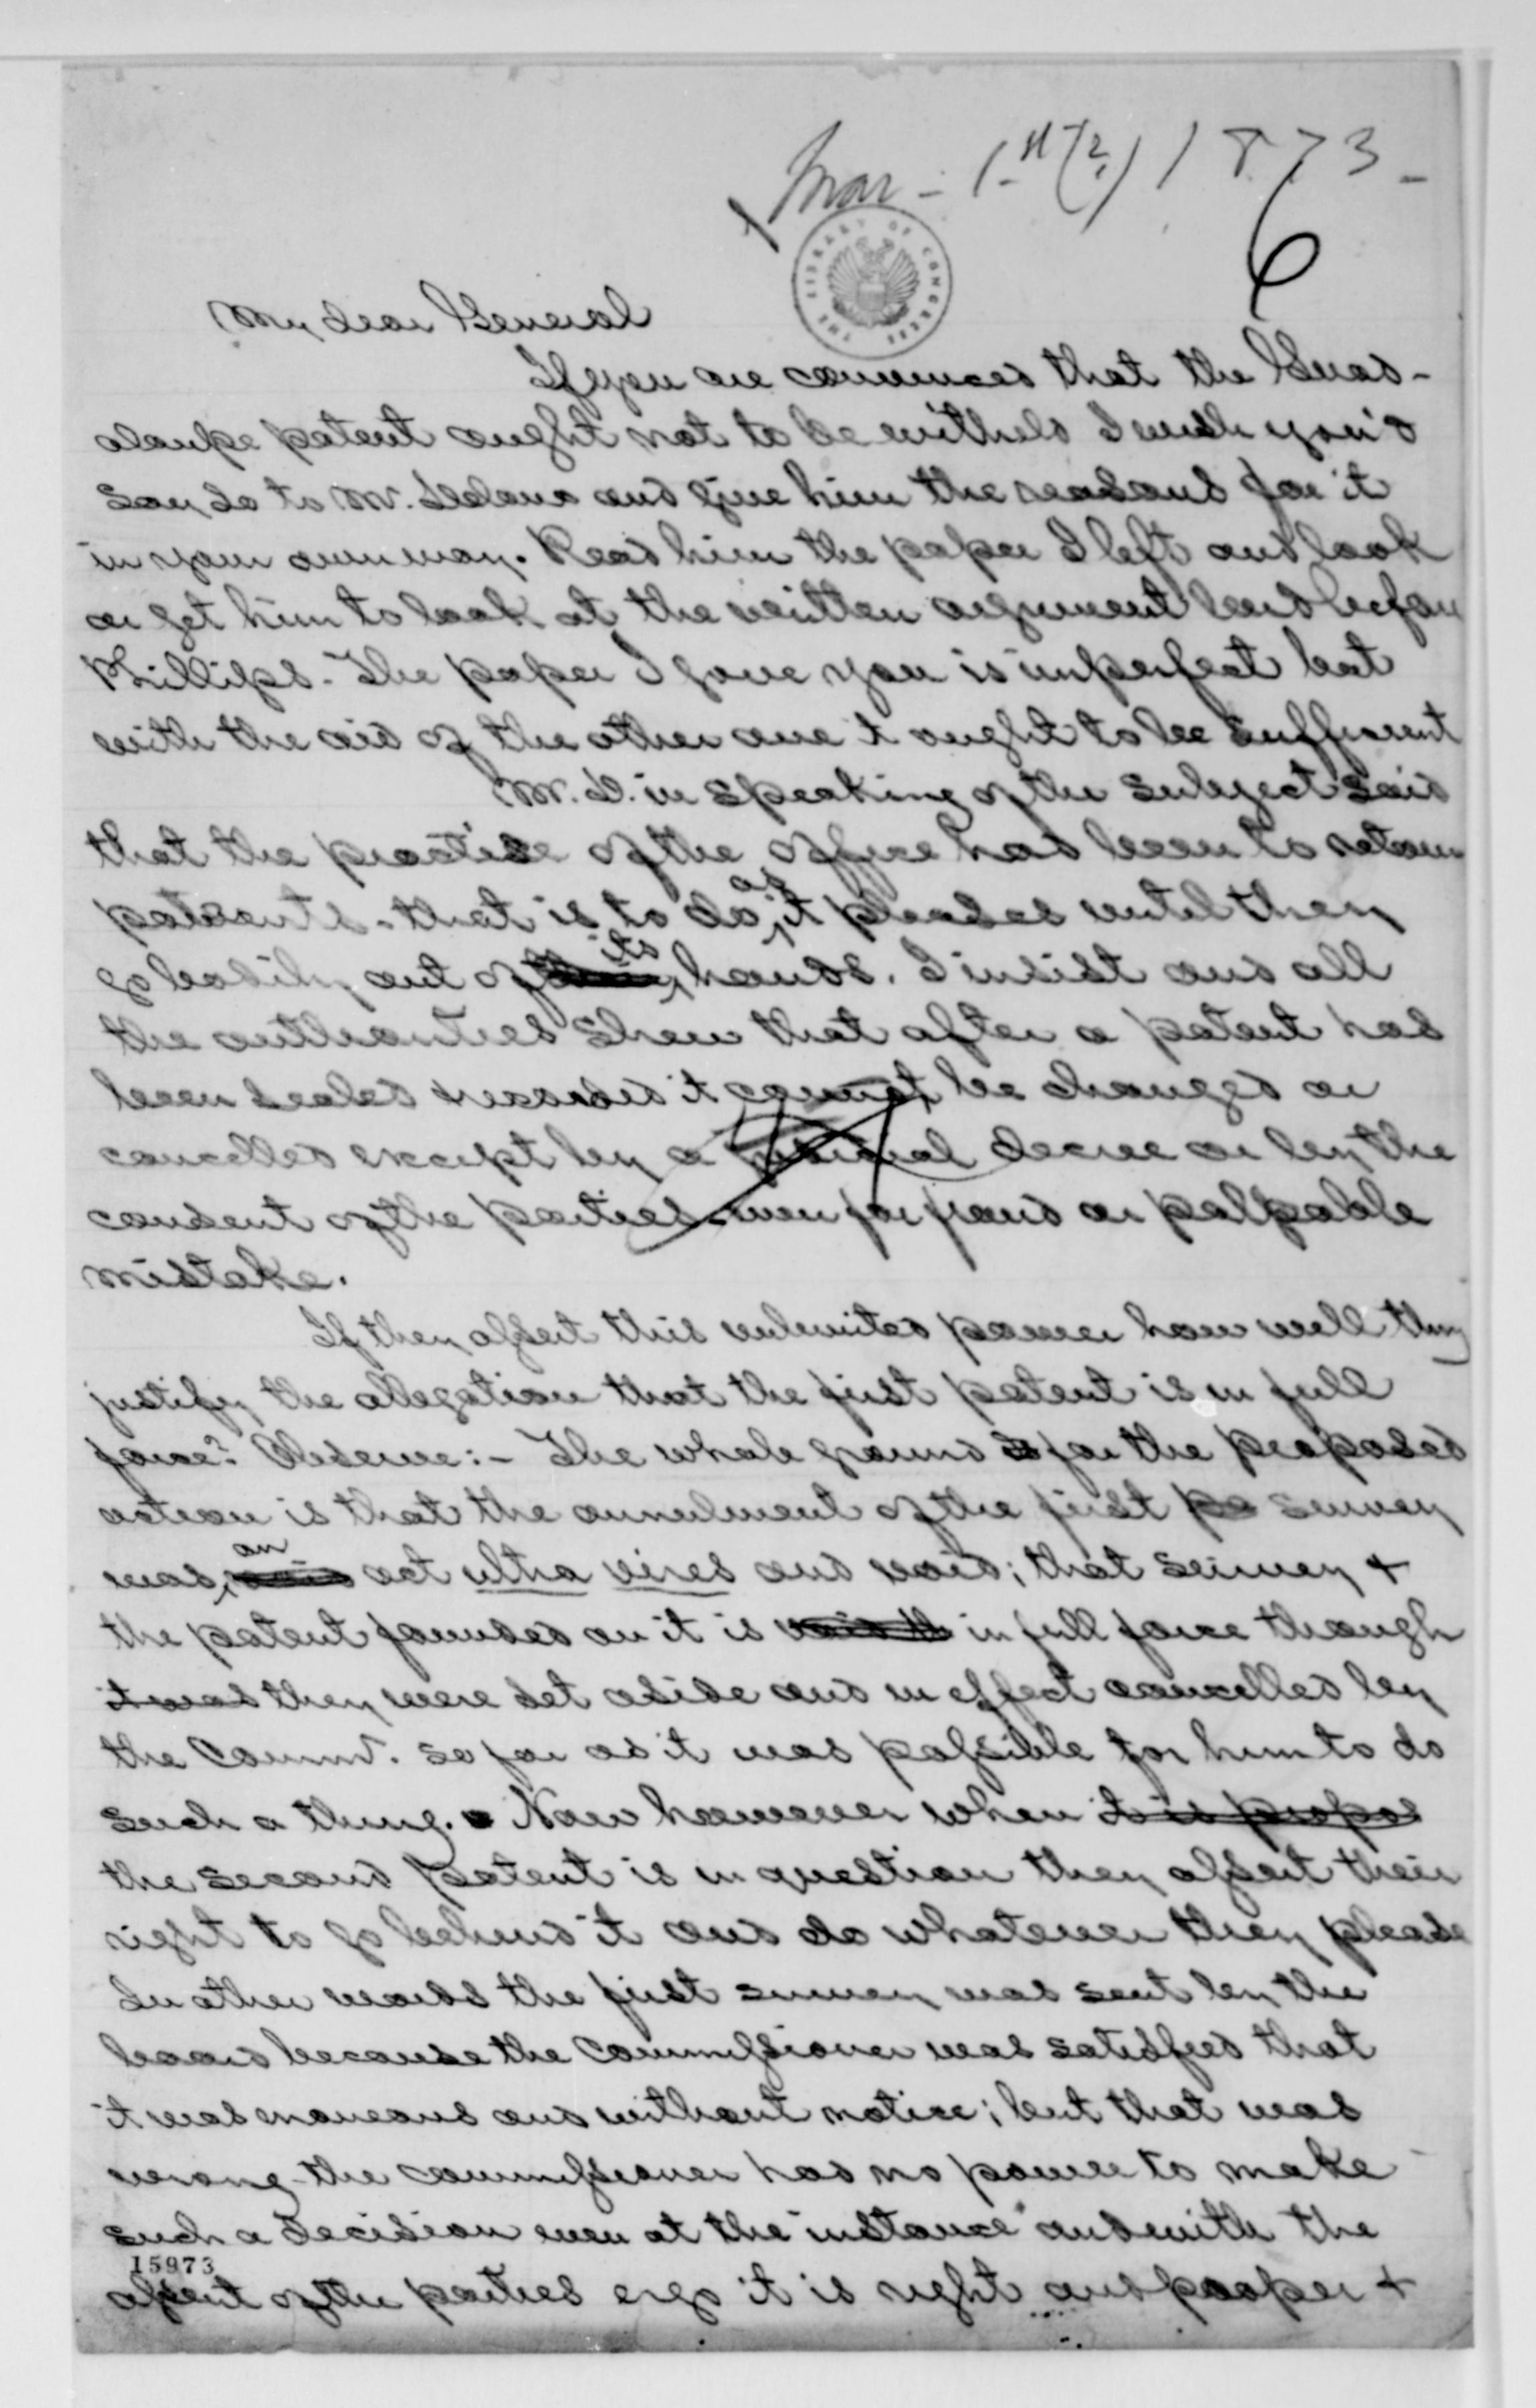 Mar - 1st (?) 1873 -
6
THE LIBRARY OF CONGRESS
My dear General
If you are convinced that the Guad-
aloupe patent ought not to be withheld I wish you'd
say so to Mr. Delano and give him the reasons for it
in your own way. Read him the paper I left and look
or get him to look at the written argument laid before
Phillips. The paper I gave you is imperfect but
with the aid of the other one it ought to be sufficient
Mr. D. in speaking of the subject said
that the practise of the office had been to retain
patents - that is to do as it pleased until they
go bodily out of its hands. I insist and all
the authorities shew that after a patent has
been sealed & recorded it cannot be changed or
cancelled except by a judicial decree or by the
consent of the parties even for fraud or palpable
mistake.
If they assert this unlimited power how will they
justify the allegation that the first patent is in full
force? Observe: - The whole ground for the proposed
action is that the annulment of the first survey
was an act ultra vires and void; that survey &
the patent founded on it is void th in full force though
it was they were set aside and in effect cancelled by
the Commr. so far as it was possible for him to do
such a thing. Now however when it is propos
the second patent is in question they assert their
right to go behind it and do whatever they please
In other words the first survey was sent by the
board because the Commissioner was satisfied that
it was erroneous and without notice; but that was
wrong - the commissioner had no power to make
such a decision even at the instance and with the
assent of the parties ergo it is right and proper &
15973